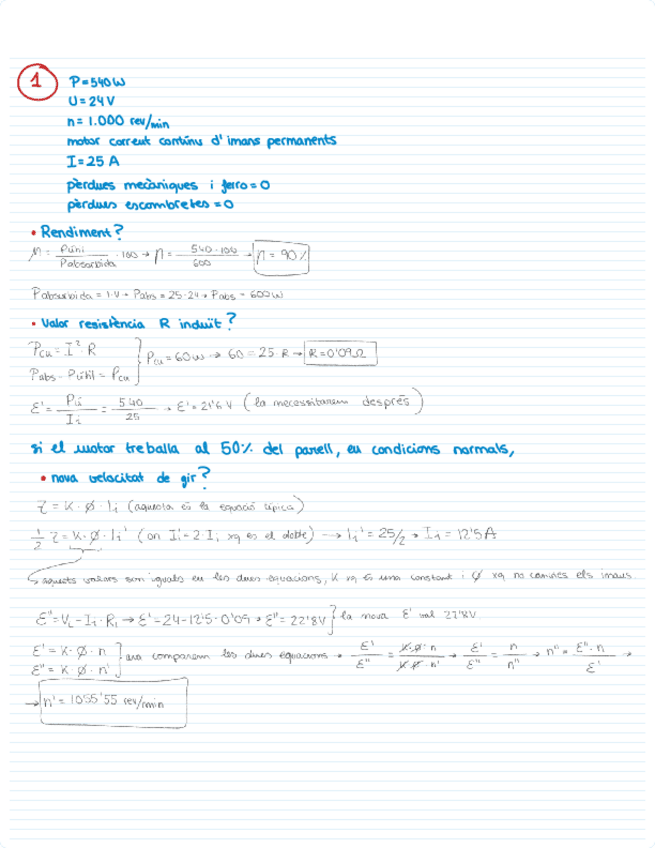 1
P=540W
U=24V
n=1.000 rev/min
motor corrent continu d'imans permanents
I=25 A
pèrdues mecàniques i ferro=0
pèrdues escombretes=0
• Rendiment?
η = Púnil / Pabsorbida · 100 → η = 540·100 / 600 → η = 90%
Pabsorbida = I·V → Pabs = 25·24 → Pabs = 600W
• Valor resistència R induït?
Pcu = I²·R
Pabs - Pútil = Pcu
Pcu = 60W → 60 = 25·R → R=0'09Ω
E' = Pú / Ii = 540 / 25 → E' = 21'6 V (la necessitarem després)
si el motor treballa al 50% del parell, en condicions normals,
• nova velocitat de gir?
Z = K·Ø·Ii (aquesta és la equació típica)
1/2 Z = K·Ø·Ii' (on Ii=2·Ii xq es el doble) → Ii' = 25/2 → Ii = 12'5A
aquests valors son iguals en les dues equacions, K xq és una constant i Ø xq no canvies els imans
E''=VL-Ii·Ri → E'=24-12'5·0'09 → E''=22'8V la nova E' val 22'8V
E' = K·Ø·n
E'' = K·Ø·n'
ara comparem les dues equacions → E'/E'' = K·Ø·n / K·Ø·n' → E'/E'' = n/n'' → n'' = E''·n / E' →
→ n' = 1055'55 rev/min